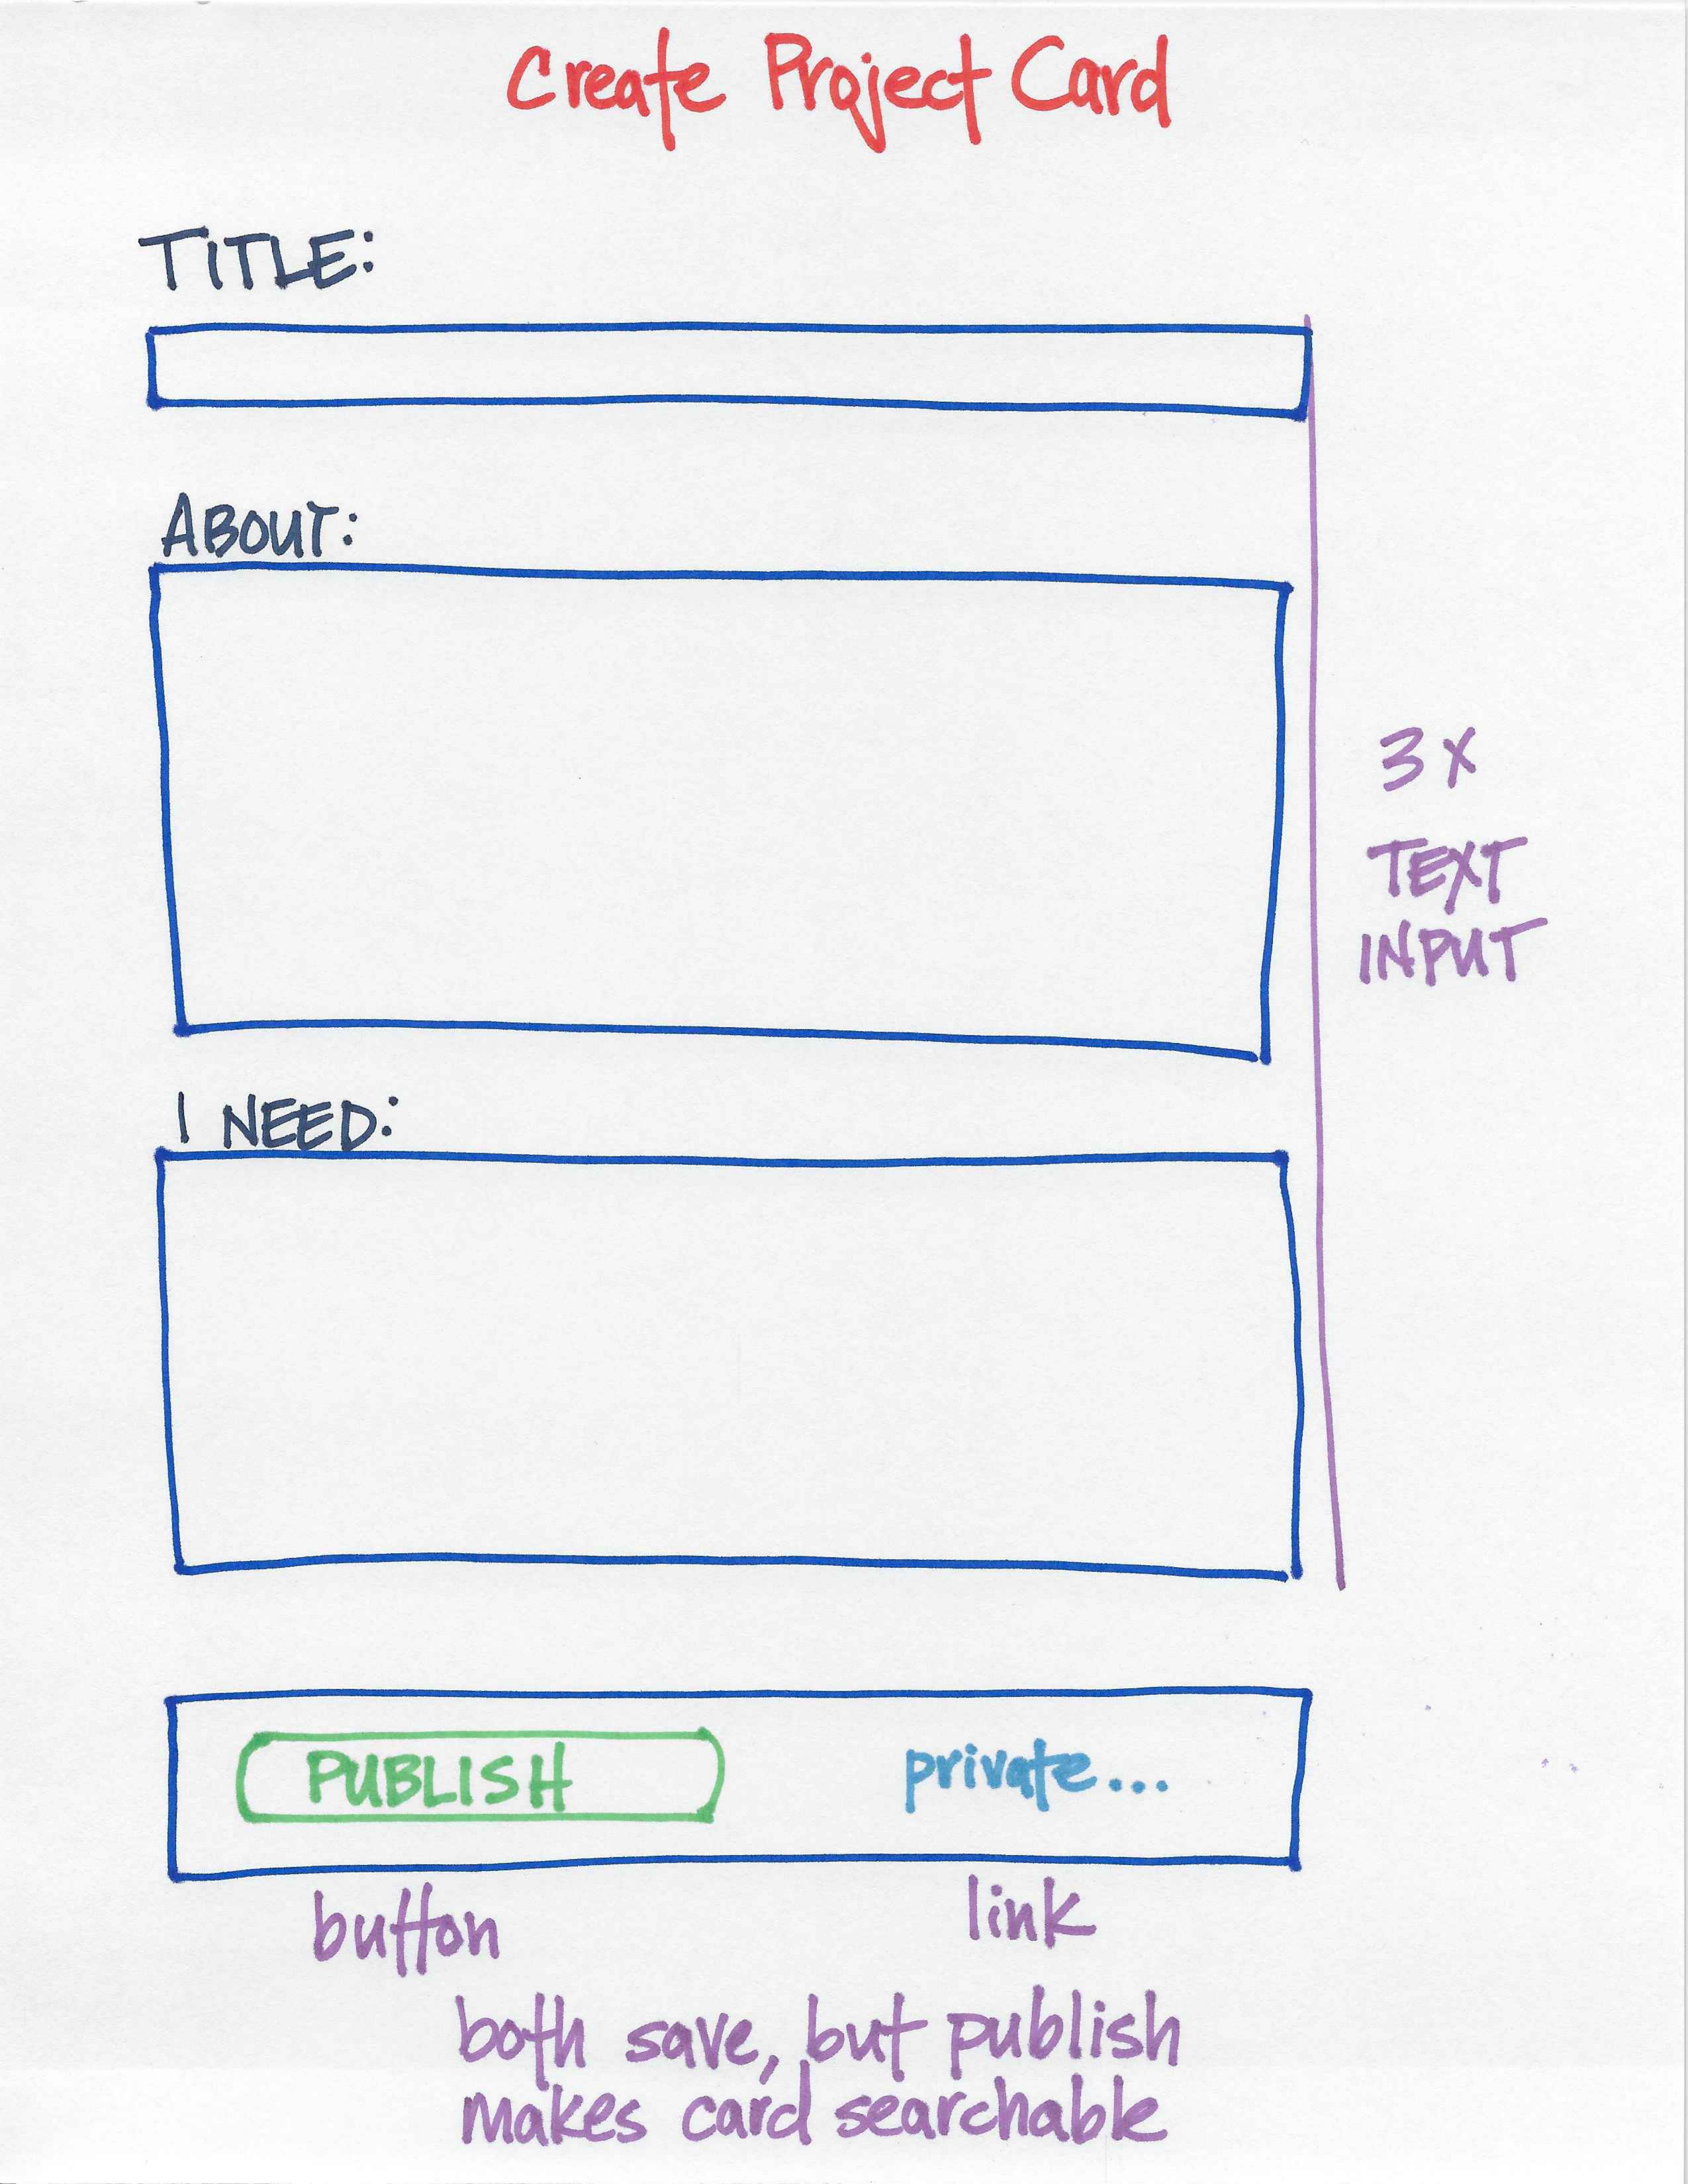 Create Project Card
TITLE:
ABOUT:
3x
TEXT
INPUT
I NEED:
PUBLISH
private...
button
link
both save, but publish
makes card searchable